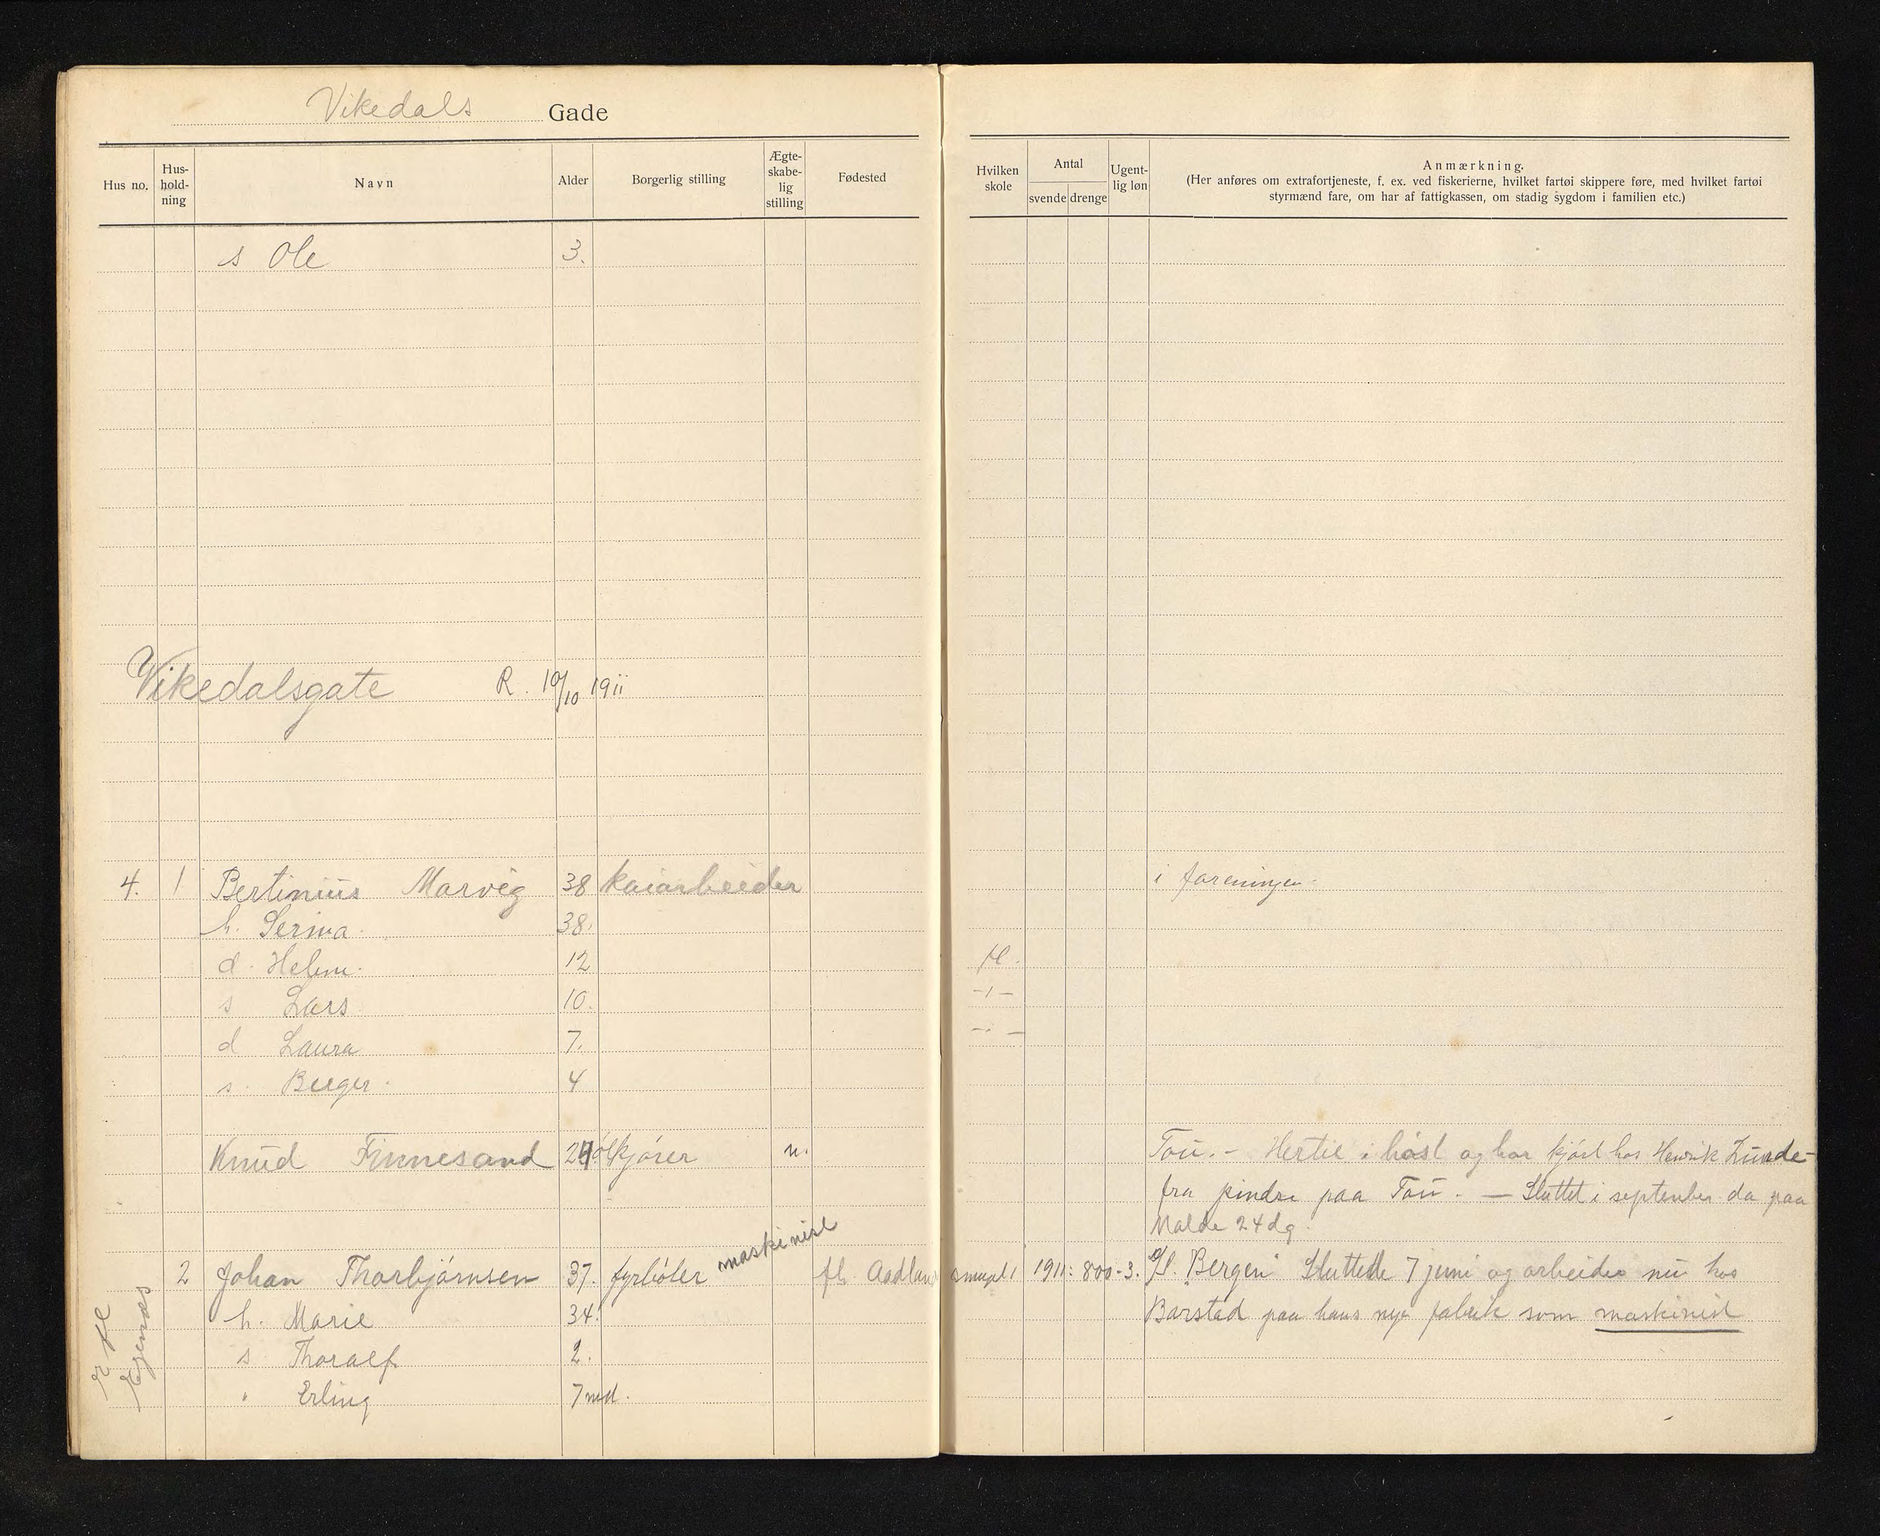 Vikedals Gade
Hus no. Hus-hold-ning Navn Alder Borgerlig stilling Ægte-skabe-lig stilling Fødested
Hvilken skole Antal svende drenge Ugent-lig løn Anmærkning.
(Her anføres om extrafortjeneste, f. ex. ved fiskerierne, hvilket fartøi skippere føre, med hvilket fartøi
styrmænd fare, om har af fattigkassen, om stadig sygdom i familien etc.)
s Ole 3.
Vikedalsgate R. 10/10 1911
4. 1 Bertinius Marvig 38 kaiarbeider i foreningen
h. Serina 38.
d. Helene. 12 H.
s Lars 10. -"-
d Laura 7. -"-
s. Berger. 4
Knud Finnesand 24 ølkjører u. Tou. - Hertil i høst og har kjørt hos Henrik Lunde-
fra pindse paa Tou. — Sluttet i september da paa
Malde 24 dg.
2 Johan Thorbjørnsen 37. fyrbøter maskinist fh. Aadland 1911: 800-3. Bergen Sluttede 7 juni og arbeider nu hos
h. Marie 34. Barstad paa hans nye fabrik som maskinist
s Thoralf 2.
" Erling 7 md.